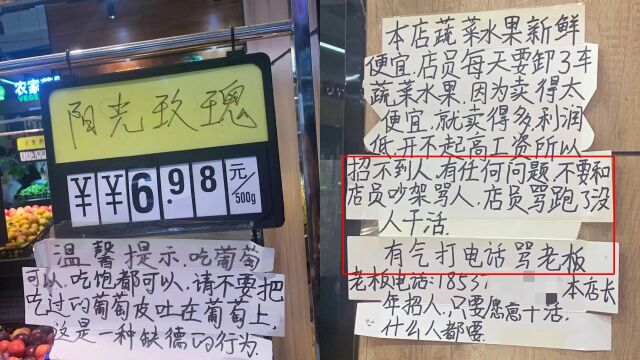 农家
VEGE
阳光玫瑰
¥¥6.98 元/500g
温馨提示.吃葡萄
可以.吃饱都可以.请不要把
吃过的葡萄皮吐在葡萄上,
这是一种缺德的行为.
本店蔬菜水果新鲜
便宜.店员每天要卸3车
蔬菜水果.因为卖得太
便宜.就卖得多利润
低.开不起高工资所以
招不到人.有任何问题.不要和
店员吵架骂人.店员骂跑了没
人干活.
有气打电话骂老板
老板电话:1853 本店长
年招人.只要愿意干活.
什么人都要.